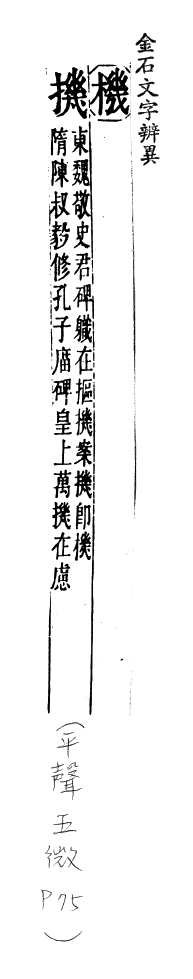 金石文字辨異
機
東魏敬史君碑軄在摳機案機即機
隋陳叔毅修孔子庿碑皇上萬機在慮
（平聲五微 P75）